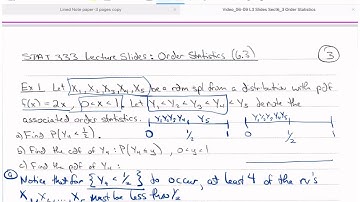 Lined Note paper (3 pages copy
Video_06-09 L3 Slides Sec(6_3 Order Statistics
STAT 333 Lecture Slides: Order Statistics (6.3)
3
Ex 1. Let X₁, X₂, X₃, X₄, X₅ be a rdm spl from a distribution with pdf
f(x) = 2x, 0<x<1. Let Y₁<Y₂<Y₃<Y₄<Y₅ denote the
associated order statistics.
Y₁Y₂Y₃Y₄ Y₅
Y₁Y₂Y₃Y₄Y₅
a) Find P(Y₄<½).
0 1/2 1
0 1/2 1
b) Find the cdf of Y₄: P(Y₄≤y), 0<y<1
c) Find the pdf of Y₄:
a) Notice that for {Y₄<1/2} to occur, at least 4 of the rv's
X₁, X₂, ..., X₅ must be less than 1/2